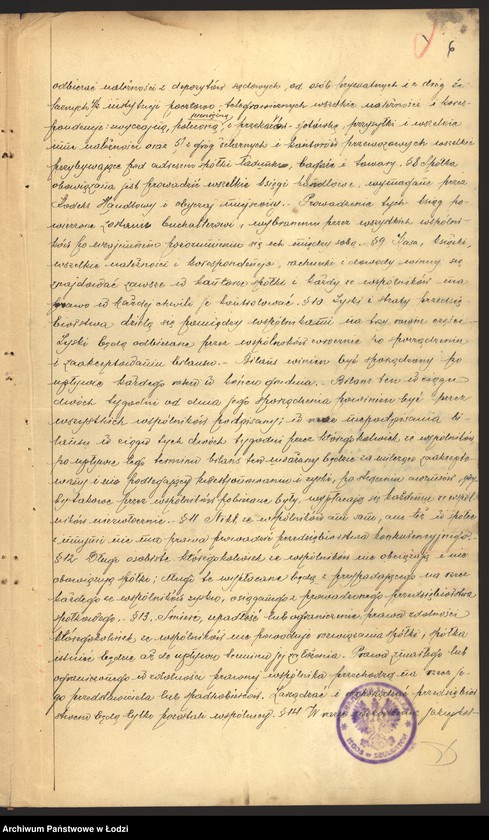 6
odbierać należności z depozytów sądowych, od osób prywatnych i z dróg że-
laznych, instytucji pocztowo-telegraficznych wszelkie należności i kores-
pondencję: zwyczajną, pieniężną, poleconą i przekazową, przesyłki i wszelkie
inne należności oraz z dróg żelaznych i kantorów przewozowych wszelkie
przybywające pod adresem spółki ładunki, bagaże i towary. § 8 Spółka
obowiązana jest prowadzić wszelkie księgi handlowe, wymagane przez
Kodeks Handlowy i obyczaj miejscowy. Prowadzenie tych ksiąg po-
wierzone zostanie buchalterowi, wybranemu przez wszystkich wspólni-
ków po wzajemnem porozumieniu się ich między sobą. § 9 Kasa, książki,
wszelkie należności i korespondencja, rachunki i dowody winny się
znajdować zawsze w kantorze spółki i każdy ze wspólników ma
prawo w każdej chwili je kontrolować. § 10 Zyski i straty przedsię-
biorstwa dzielą się pomiędzy wspólnikami na trzy równe części.
Zyski będą odbierane przez wspólników corocznie po sporządzeniu
i zaakceptowaniu bilansu. Bilans winien być sporządzony po
upływie każdego roku w końcu grudnia. Bilans ten w ciągu
dwóch tygodni od dnia jego sporządzenia powinien być przez
wszystkich wspólników podpisany; w razie niepodpisania bi-
lansu w ciągu tych dwóch tygodni przez któregokolwiek ze wspólników
po upływie tego terminu bilans ten uważany będzie za milcząco zaakcepto-
wany i nie podlegający kwestjonowaniu i zyski, po strąceniu
przez wspólników pobrane były, wypłacają się każdemu ze wspól-
ników niezwłocznie. § 11 Nikt ze wspólników ani sam, ani też w spółce
z innymi nie ma prawa prowadzić przedsiębiorstwa konkurencyjnego.
§ 12 Długi osobiste któregokolwiek ze wspólników nie obciążają i nie
obowiązują spółki; długi te wypłacane będą z przypadającego na rzecz
każdego ze wspólników zysku, osiąganego z prowadzonego przedsiębiorstwa
spółkowego. § 13. Śmierć, upadłość lub ograniczenie prawa zdolności
któregokolwiek ze wspólników nie powoduje rozwiązania spółki, spółka
istnieć będzie aż do upływu terminu jej założenia. Prawa zmarłego lub
ograniczonego w zdolności prawnej wspólnika przechodzą na rzecz je-
go przedstawiciela lub spadkobierców. Zarządzać i przedsiębior-
stwem będą tylko pozostali wspólnicy. § 14 W razie jakiejkol-
Archiwum Państwowe w Łodzi